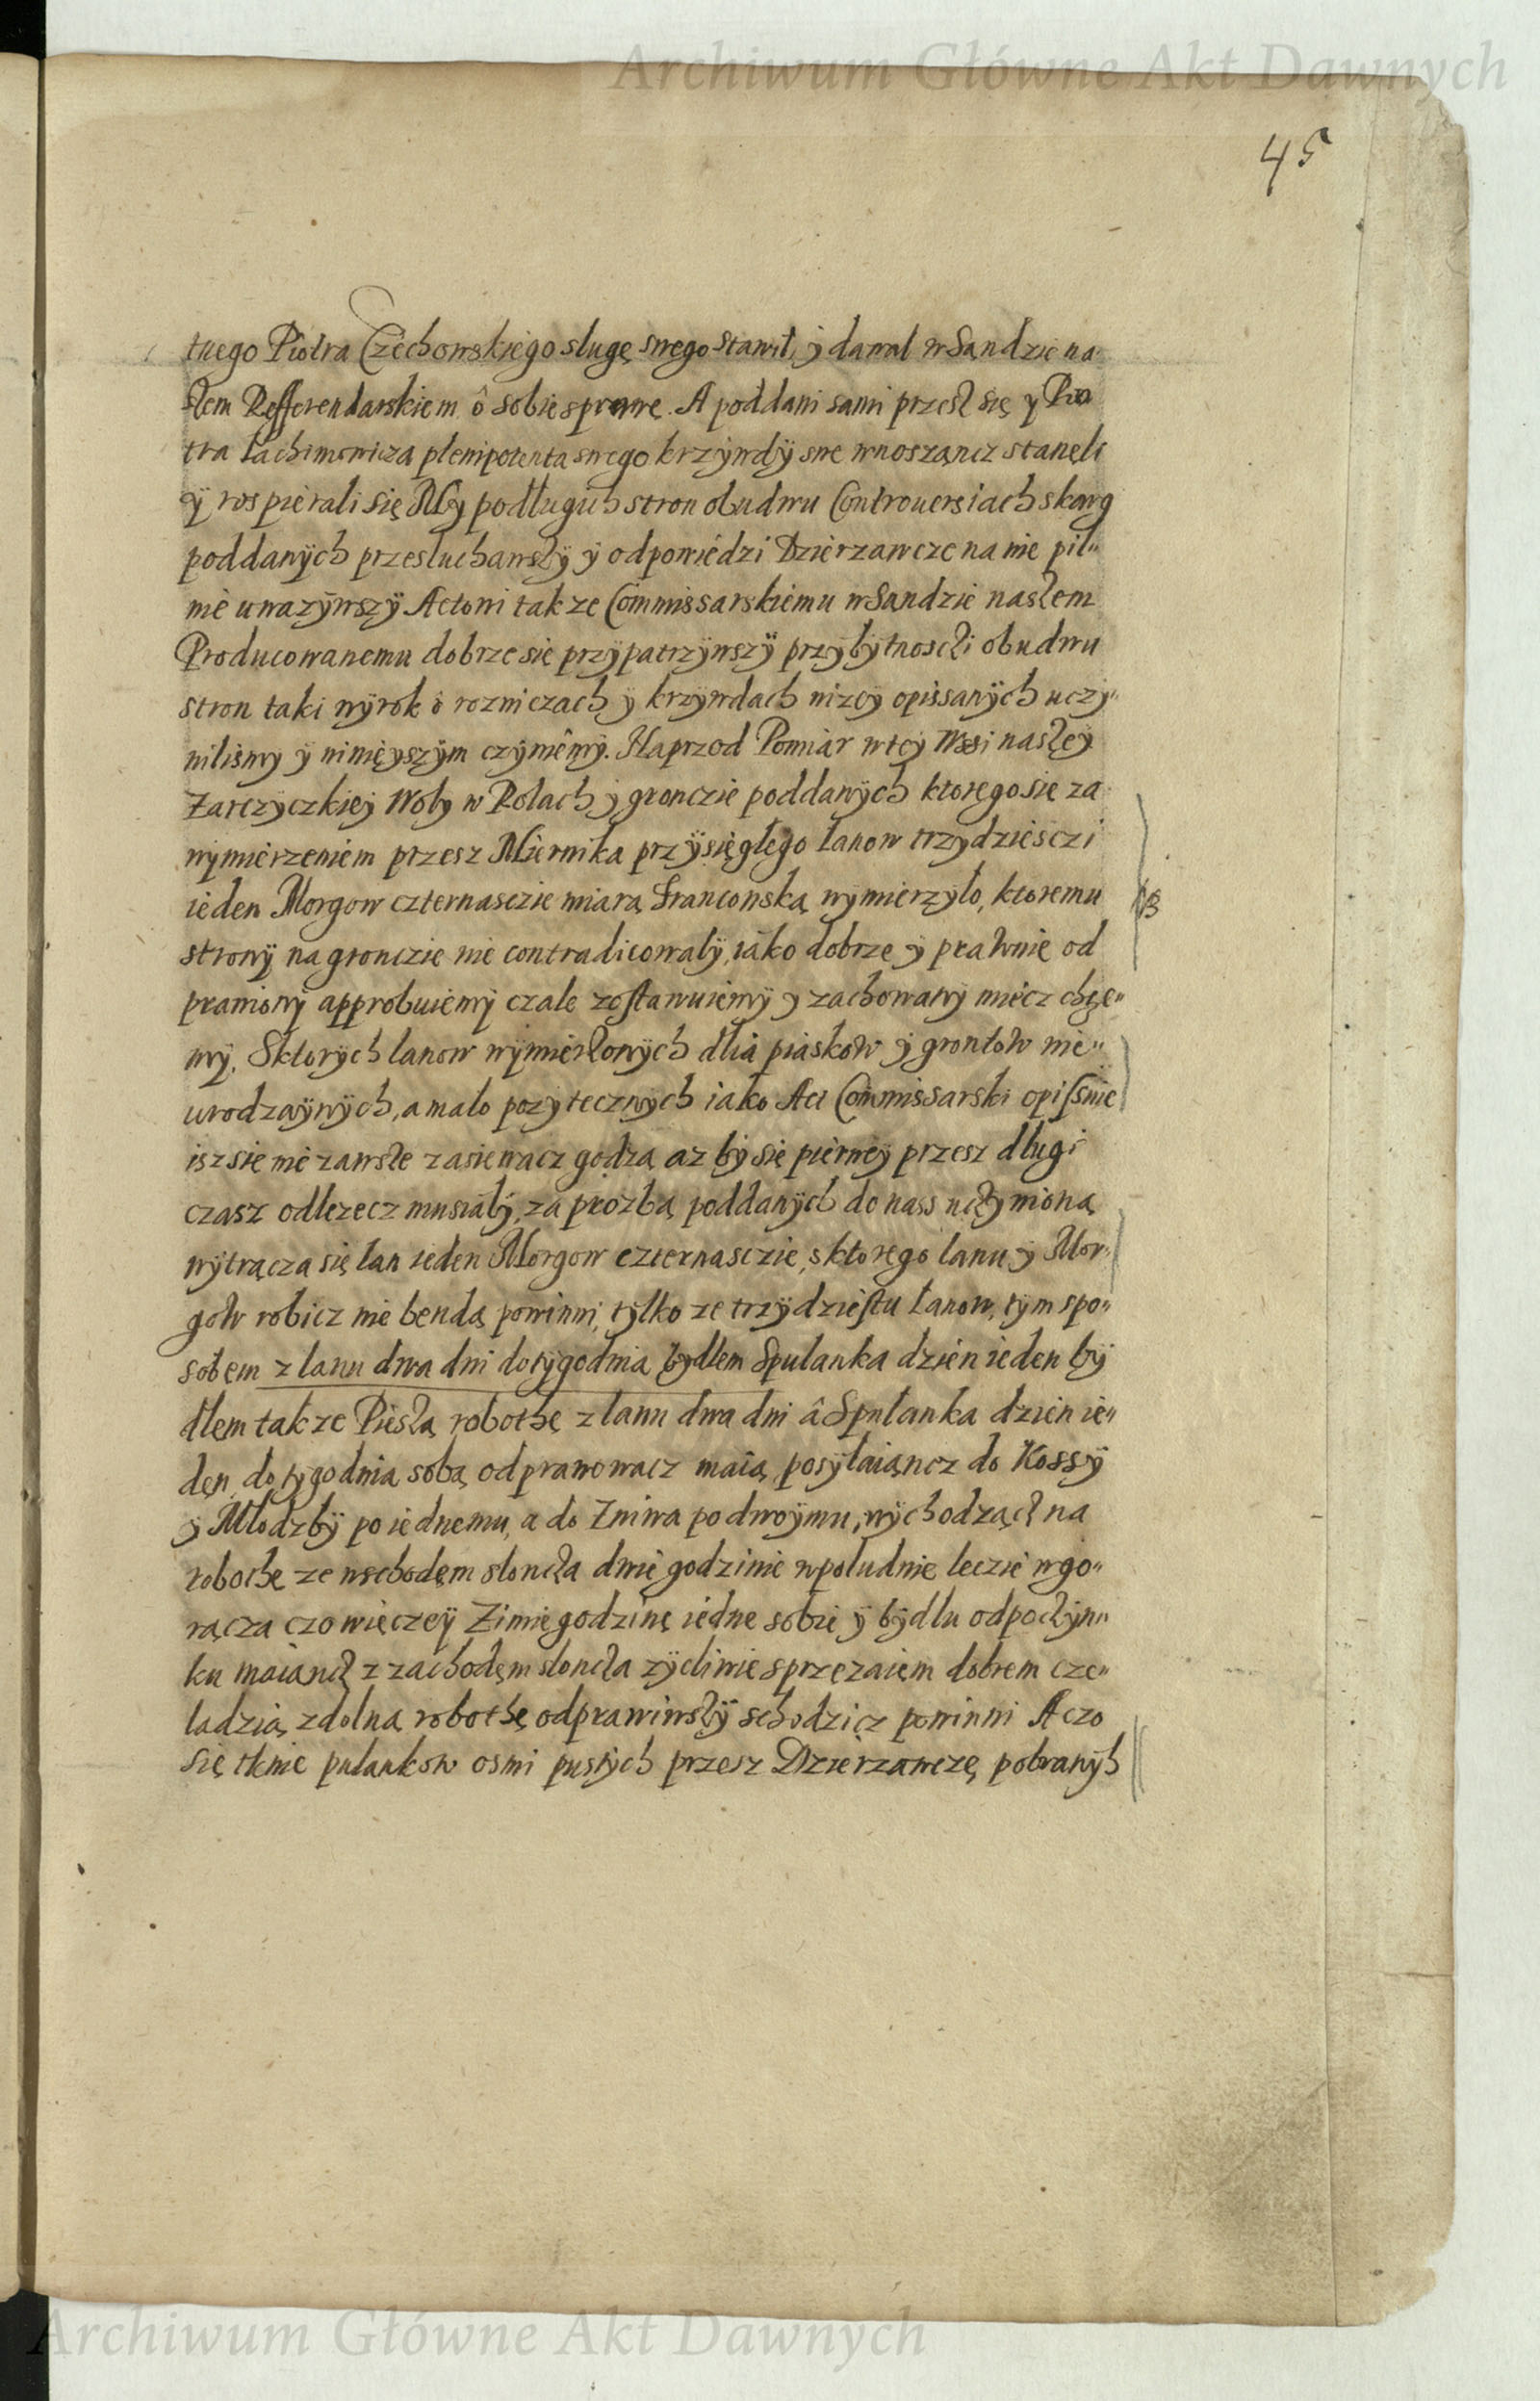 Archiwum Główne Akt Dawnych
45
tnego Piotra Czechowskiego sługę swego stawił, ÿ dawał w Sądzie na„
szem Refferendarskiem ô sobie sprawę. A poddani sami przesz się y Pio
tra Łachimowicza plenipotenta swego krzÿwdÿ swe wnosząncz stanęli
ÿ rospierali się Mÿ podługich stron obudwu Controuersiach skarg
poddanÿch przesłuchawszÿ ÿ odpowiedzi Dzierzawcze na nie pil„
nie uwazÿwszÿ Actowi takze Commissarskiemu w Sandzie naszem
Producowanemu dobrze sie przÿpatrzÿwszÿ przÿbÿtnosczi obudwu
stron taki wÿrok o rozniczach ÿ krzÿwdach nizeÿ opissanÿch uczÿ„
nilismy ÿ ninięÿszÿm czÿniemÿ. Naprzod Pomiar w teÿ Wsi naszeÿ
Zarczyczkieÿ Woly w Rolach ÿ gronczie poddanÿch ktorego sie za
wÿmierzeniem przesz Miernika przÿsięgłego łanow trzÿdziesczi
ieden Morgow czternasczie miarą Franconską wymierzÿło, ktoremu
stronÿ na gronczie nie contradicowałÿ, iako dobrze ÿ prawnie od
prawionÿ approbuiemÿ czale zostawuiemÿ ÿ zachowanÿ miecz chcze„
mÿ. Sktorÿch lanow wÿmierzonÿch dlia piaskow ÿ grontow nie„
urodzaÿnÿch, a mało pozÿtecznÿch iako Act Commissarski opissuie
isz sie nie zawsze zasiewacz godzą az bÿ się pierweÿ przesz długi
czasz odlezecz musiałÿ, za prozbą poddanÿch do nass uczÿnioną
wÿtrącza się łan ieden Morgow czternasczie, sktorego lanu ÿ Mor„
gow robicz nie bendą powinni, tÿlko ze trzÿdziestu łanow, tÿm spo„
sobem z lanu dwa dni do tÿgodnia bydłem Spułanka dzien ieden bÿ
dłem takze Pieszą robothę z łanu dwa dni â Spułanka dzien ie„
den, do tÿgodnia sobą odprawowacz maią, posÿłaiąncz do Kossÿ
ÿ Młodzbÿ po iednemu, a do Zniwa po dwoÿmu, wÿchodzącz na
robothe ze wschodem słoncza dwie godzinie w południe leczie w go„
rącza czo więczeÿ Zimie godzinę iedne sobie ÿ bÿdłu odpoczÿn„
ku maiancz z zachodem słoncza zÿcliwie sprzezaiem dobrem cze„
ladzią zdolną robothę odprawiwszÿ schodzicz powinni A czo
się tknie pułankow osmi pustÿch przesz Dzierzawczę pobranÿch
Archiwum Główne Akt Dawnych